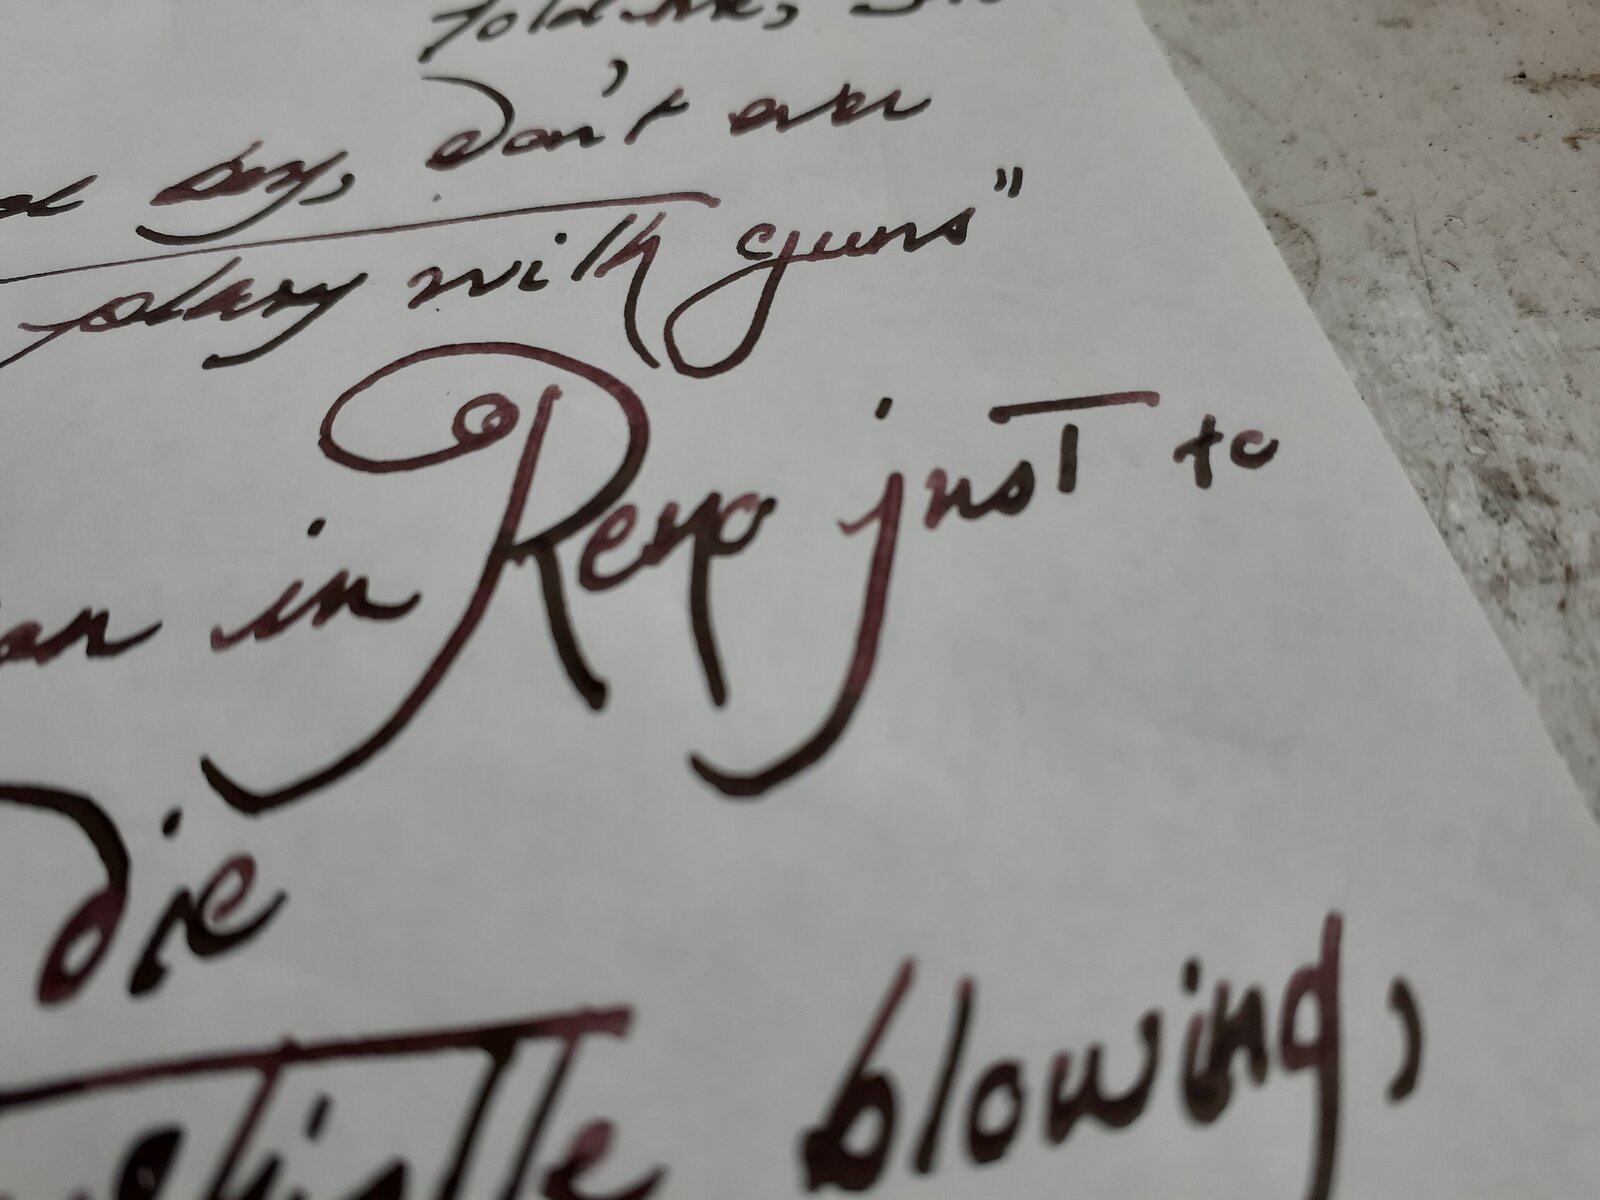 told me, So
boy, don't ever
play with guns"
in Reno just to
die
whistle blowing,